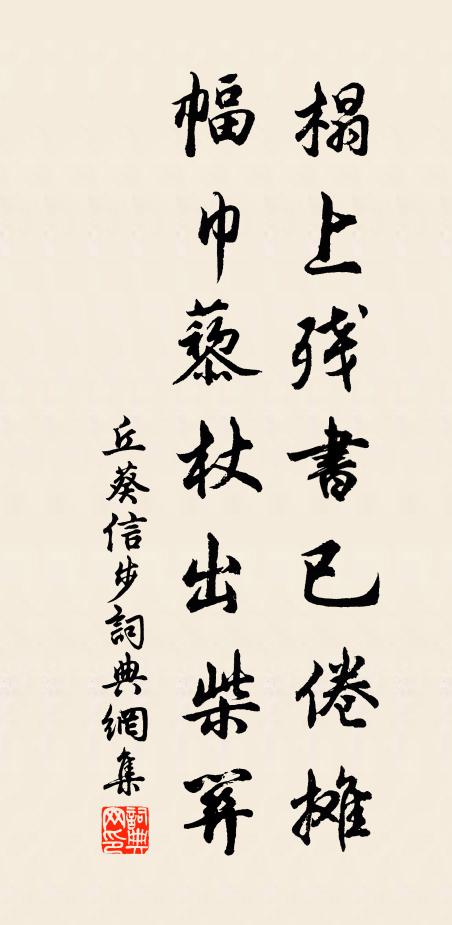 榻上残書已倦摊
幅巾藜杖出柴關
丘葵信步詞典網集
詞典网印